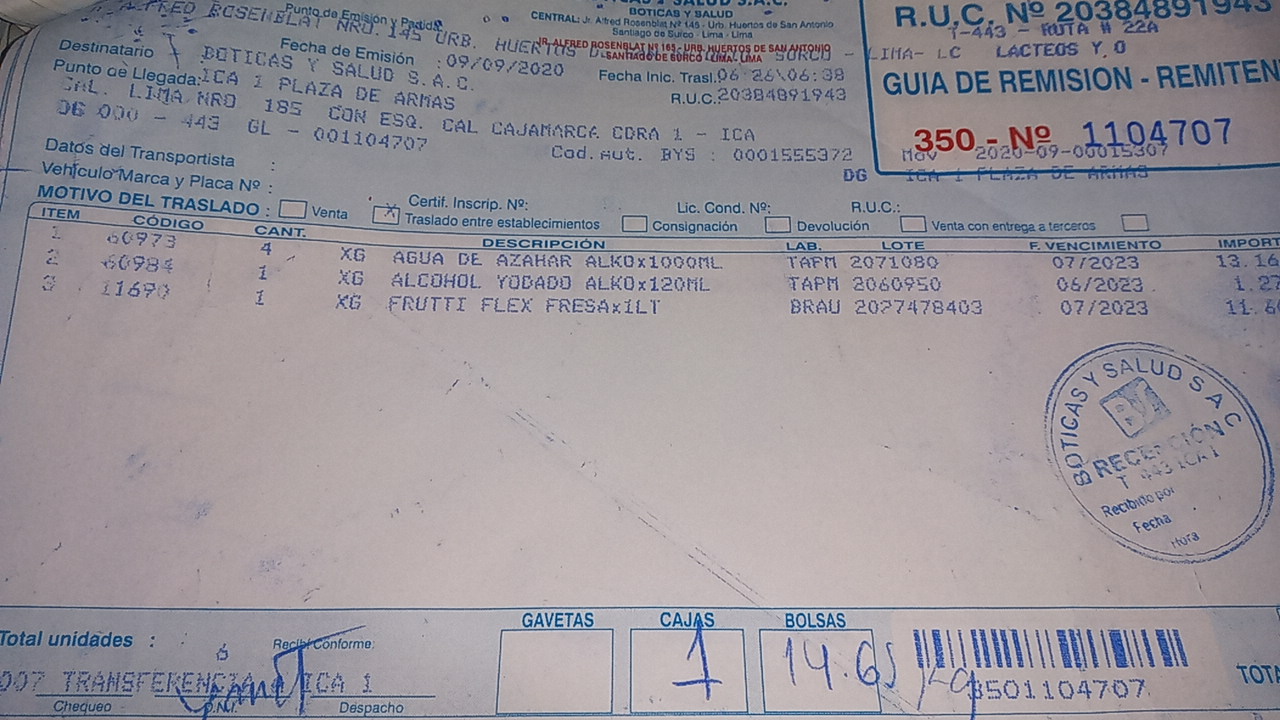 BOTICAS Y SALUD
CENTRAL: Jr. Alfred Rosenblat Nº 145 - Urb. Huertos de San Antonio
Santiago de Surco - Lima - Lima
Punto de Emisión y Partida
ALFRED ROSENBLAT NRO. 145 URB. HUERTOS D SURCO - LIMA- LC
JR. ALFRED ROSENBLAT Nº 165 - URB. HUERTOS DE SAN ANTONIO
SANTIAGO DE SURCO - LIMA - LIMA
R.U.C. Nº 20384891943
T-443 - RUTA # 22A
LACTEOS Y, O
GUIA DE REMISION - REMITEN
350 - Nº 1104707
MOV 2020-09-00015307
DG ICA 1 PLAZA DE ARMAS
Fecha de Emisión : 09/09/2020
Fecha Inic. Trasl. 06 26\06:38
R.U.C. 20384891943
Destinatario BOTICAS Y SALUD S.A.C.
Punto de Llegada: ICA 1 PLAZA DE ARMAS
CAL. LIMA NRO 185 CON ESQ. CAL CAJAMARCA CDRA 1 - ICA
DG 000 - 443 GL - 001104707
Cod.Aut. BYS : 0001555372
Datos del Transportista :
Vehículo Marca y Placa Nº :
Certif. Inscrip. Nº:
Lic. Cond. Nº:
R.U.C.:
MOTIVO DEL TRASLADO : Venta X Traslado entre establecimientos Consignación Devolución Venta con entrega a terceros
ITEM CÓDIGO CANT. DESCRIPCIÓN LAB. LOTE F. VENCIMIENTO IMPORT
1 60973 4 XG AGUA DE AZAHAR ALKOx1000ML TAPM 2071080 07/2023 13.16
2 60984 1 XG ALCOHOL YODADO ALKOx120ML TAPM 2060950 06/2023 1.27
3 11690 1 XG FRUTTI FLEX FRESAx1LT BRAU 2027478403 07/2023 11.6
BOTICAS Y SALUD S A C
RECEPCIÓN
T 443 ICA 1
Recibido por
Fecha
Hora
GAVETAS CAJAS BOLSAS
1 14.65 Kg
Total unidades : 6
Recibí Conforme:
007 TRANSFERENCIA ICA 1
Chequeo D.N.I. Despacho
3501104707
TOTA